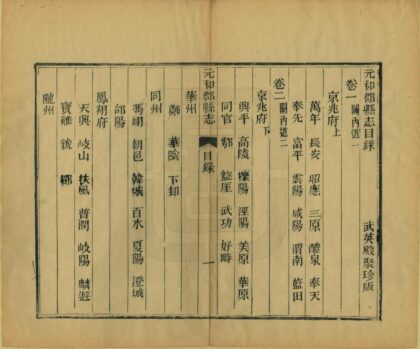 元和郡縣志目錄
武英殿聚珍版
卷一 關內道一
京兆府上
萬年 長安 昭應 三原 醴泉 奉天
奉先 富平 雲陽 咸陽 渭南 藍田
卷二 關內道二
京兆府下
興平 高陵 櫟陽 涇陽 美原 華原
同官 鄠 盩厔 武功 好畤
元和郡縣志 目錄 一
華州
鄭 華陰 下邽
同州
馮翊 朝邑 韓城 白水 夏陽 澄城
郃陽
鳳翔府
天興 岐山 扶風 普潤 岐陽 麟遊
寶雞 虢 郿
隴州